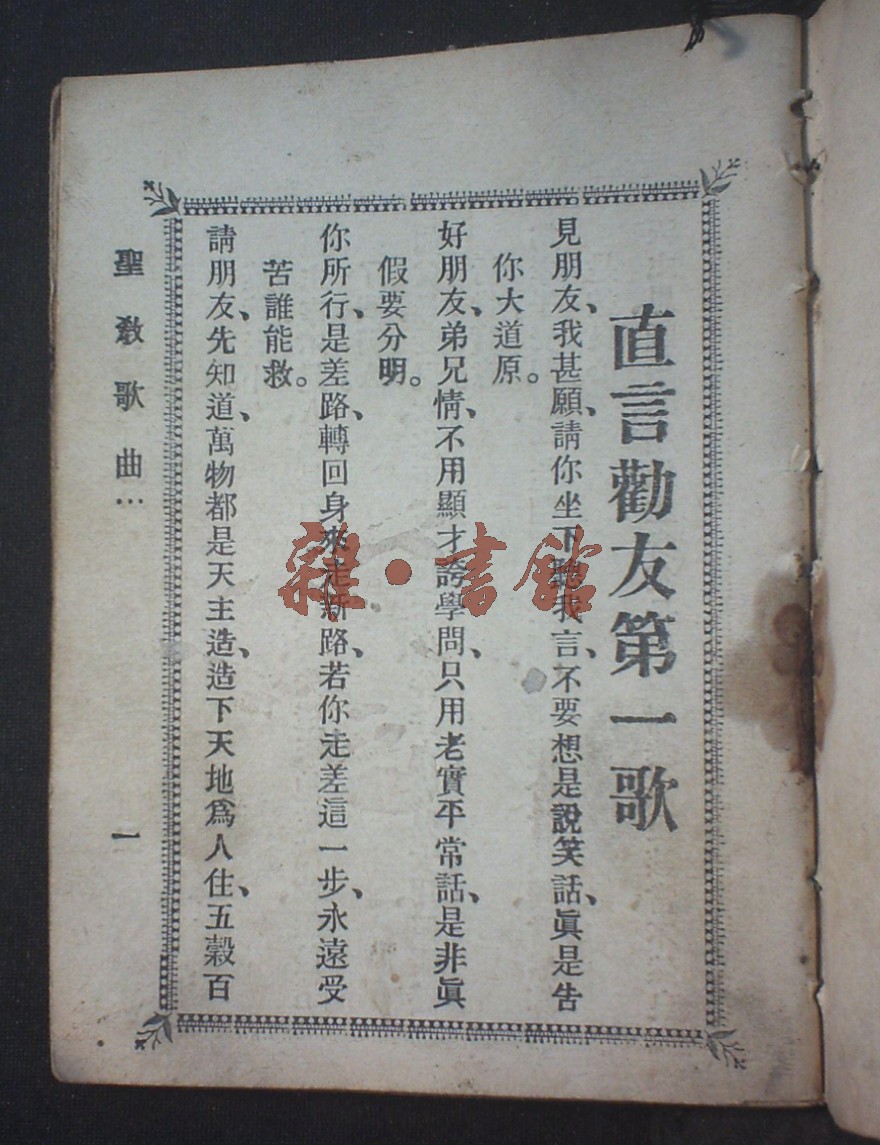 直言勸友第一歌
見朋友、我甚願、請你坐下聽我言、不要想是說笑話、眞是告
你大道原。
好朋友、弟兄情、不用顯才誇學問、只用老實平常話、是非眞
假要分明。
你所行、是差路、轉回身來走新路、若你走差這一步、永遠受
苦誰能救。
請朋友、先知道、萬物都是天主造、造下天地爲人住、五穀百
聖敎歌曲…
一
雜·書館